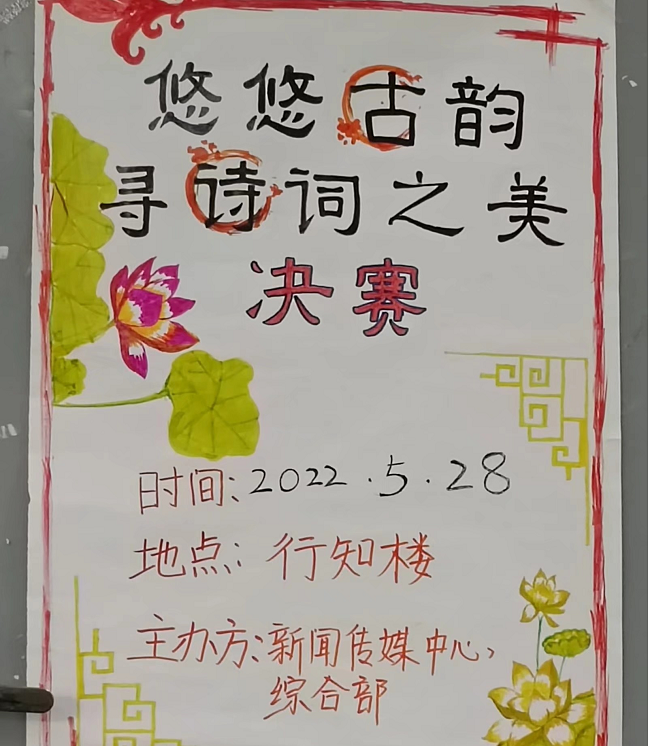 悠悠古韵
寻诗词之美
决赛
时间:2022.5.28
地点:行知楼
主办方:新闻传媒中心、
综合部